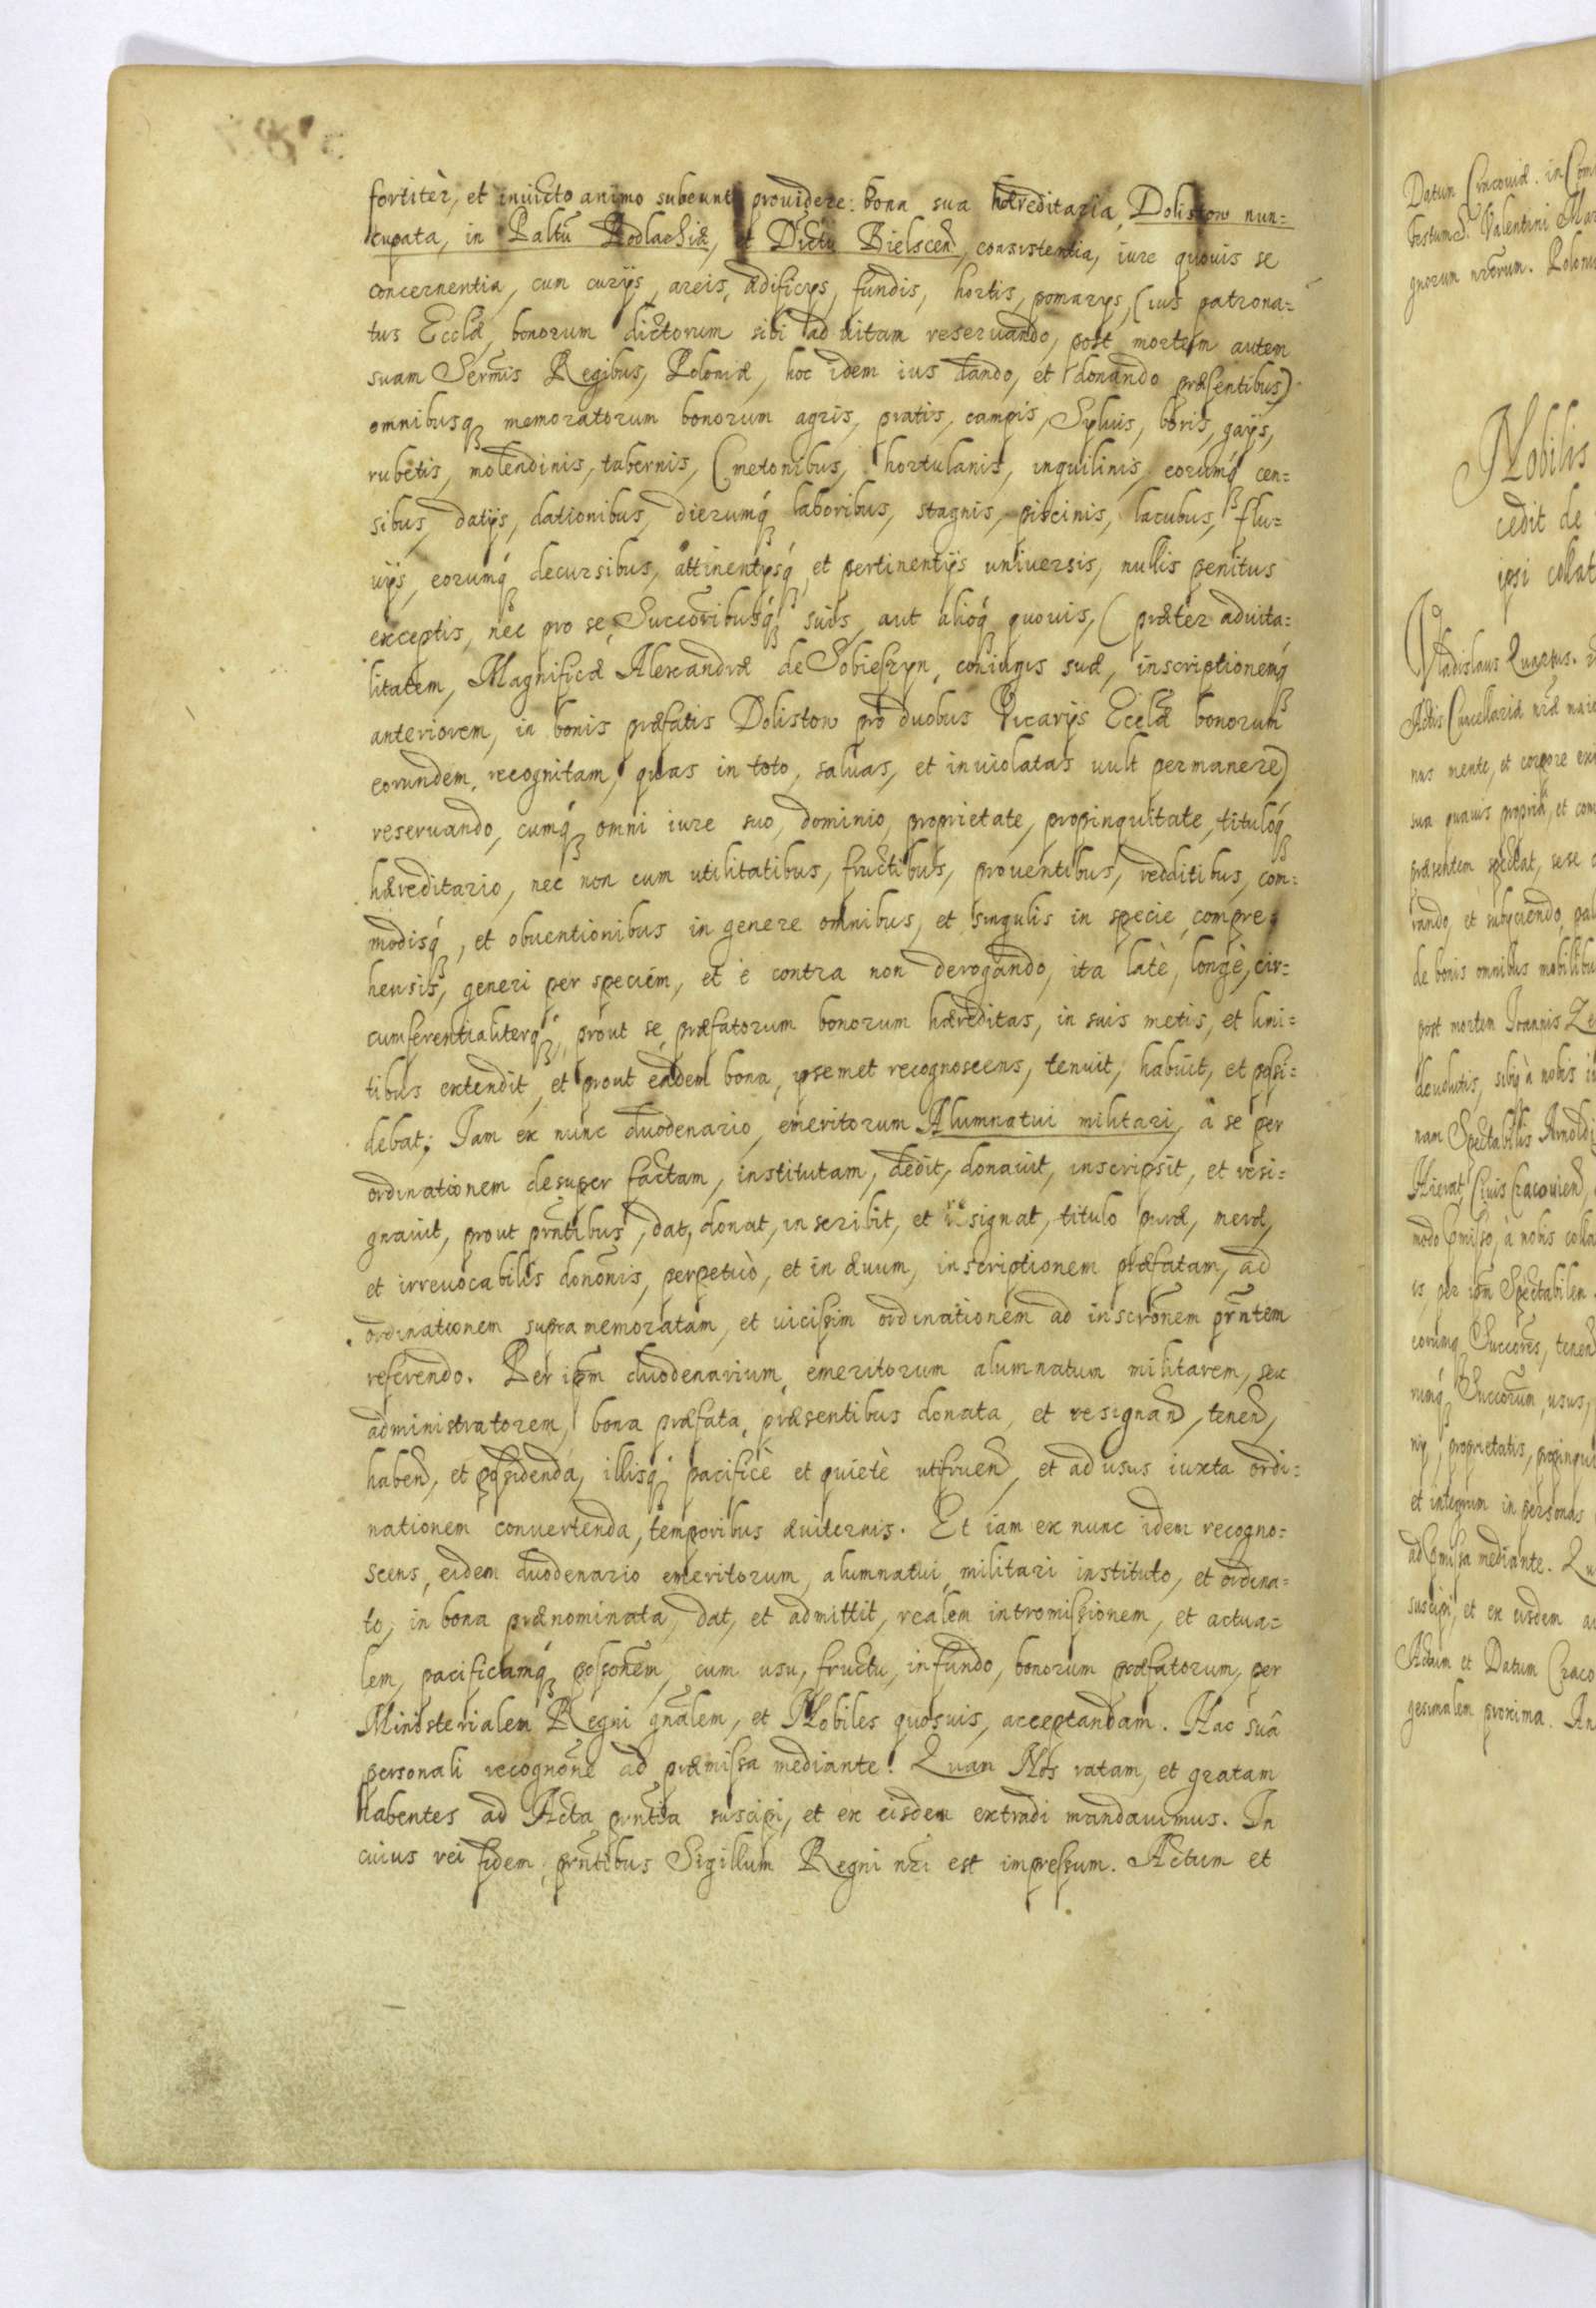 fortitèr, et inuicto animo subeunt prouidere: bona sua hæreditaria, Doliстow nun=
cupata, in Paltũ Podlachiæ, et Dĩctũ Bielsceñ, consistentia, iure quouis se
concernentia, cum curijs, areis, ædificijs, fundis, hortis, pomarijs, (ius patrona=
tus Ecclæ, bonorum dictorum sibi ad uitam reseruando, post mortem autem
suam Serm̃is Regibus, Poloniæ, hoc idem ius dando, et donando præsentibus)
omnibusq; memoratorum bonorum agris, pratis, campis, Syluis, boris, gays,
rubetis, molendinis, tabernis, Cmetonibus, hortulanis, inquilinis, eorumq́; cen=
sibus, datijs, dationibus, dierumq́; laboribus, stagnis, piscinis, lacubus, flu=
uijs, eorumq́; decursibus, attinentijsq́; et pertinentijs uniuersis, nullis penitus
exceptis, nec pro se, Succorĩbusq́; suis, aut alioq́; quouis, (præter aduita=
litatem, Magnificæ Alexandræ de Sobieszyn, coniugis suæ, inscriptionemq́;
anteriorem, in bonis præfatis Doliston pro duobus Vicarijs Ecclæ bonorum
eorundem, recognitam, quas in toto, saluas, et inuiolatas uult permanere)
reseruando, cumq́; omni iure suo, dominio, proprietate, propinquitate, tituloq́;
hæreditario, nec non cum utilitatibus, fructibus, prouentibus, redditibus, com=
modisq́;, et obuentionibus in genere omnibus, et singulis in specie, compre=
hensis, generi per speciem, et è contra non derogando, ita latè, longè, cir=
cumferentialiterq́;, prout se, præfatorum bonorum hæreditas, in suis metis, et limi=
tibus extendit, et prout eadem bona, ipsemet recognoscens, tenuit, habuit, et possi=
debat; Iam ex nunc duodenario, emeritorum Alumnatui militari, à se per
ordinationem desuper factam, institutam, dedit, donauit, inscripsit, et resi=
gnauit, prout prñtibus, dat, donat, inscribit, et resignat, titulo puræ, meræ,
et irreuocabilis donõnis, perpetuò, et in æuum, inscriptionem præfatam, ad
ordinationem supra memoratam, et uicissim ordinationem ad inscrõnem prñtem
referendo. Per ipm̃ duodenarium, emeritorum alumnatum militarem, seu
administratorem, bona præfata, præsentibus donata, et resignañ, teneñ,
habeñ, et possidenda, illisq́; pacificè et quietè utifrueñ, et ad usus iuxta ordi=
nationem conuertenda, temporibus æuiternis. Et iam ex nunc idem recogno=
scens, eidem duodenario emeritorum, alumnatui, militari instituto, et ordina=
to, in bona prænominata, dat, et admittit, realem intromissionem, et actua=
lem, pacificamq́; possoñem, cum usu, fructu, in fundo, bonorum præfatorum, per
Ministerialem Regni gñalem, et Nobiles quosuis, acceptandam. Hac suâ
personali recognõne ad præmissa mediante. Quam Nos ratam, et gratam
habentes ad Acta prñtia suscipi, et ex eisdem extradi mandauimus. In
cuius rei fidem, prñtibus Sigillum Regni nr̃i est impressum. Actum et
Datum Cracouiæ. in Com
Valentini
gnorum nr̃orum.
Nobilis
cedit de
ipsi collat
Vladislaus Quartus.
Actis Cancellariæ nr̃æ maio
nus mente, et corpore ex
sua quauis propria, et com
præsentem spectat, sese
rando, et subijciendo, pal
de bonis omnibus mobilibu
post mortem Ioannis
deuolutis, sibiq́; à nobis
nam Spectabilis Arnoldi
Ciuis Cracouieñ,
modo p̃misso, à nobis colla
is, per ipm̃ Spectabilem
eorumq́; Succores, teneñ
rumq́; Succorum, usus,
nij, proprietatis, propinqui
et integrum in personas
ad p̃missa mediante. Qu
suscipi, et ex eisdem
Actum et Datum Craco
gesimalem proxima. An